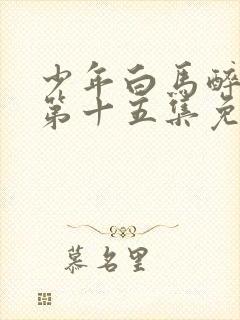 少年白馬醉
第十五集免
慕名里